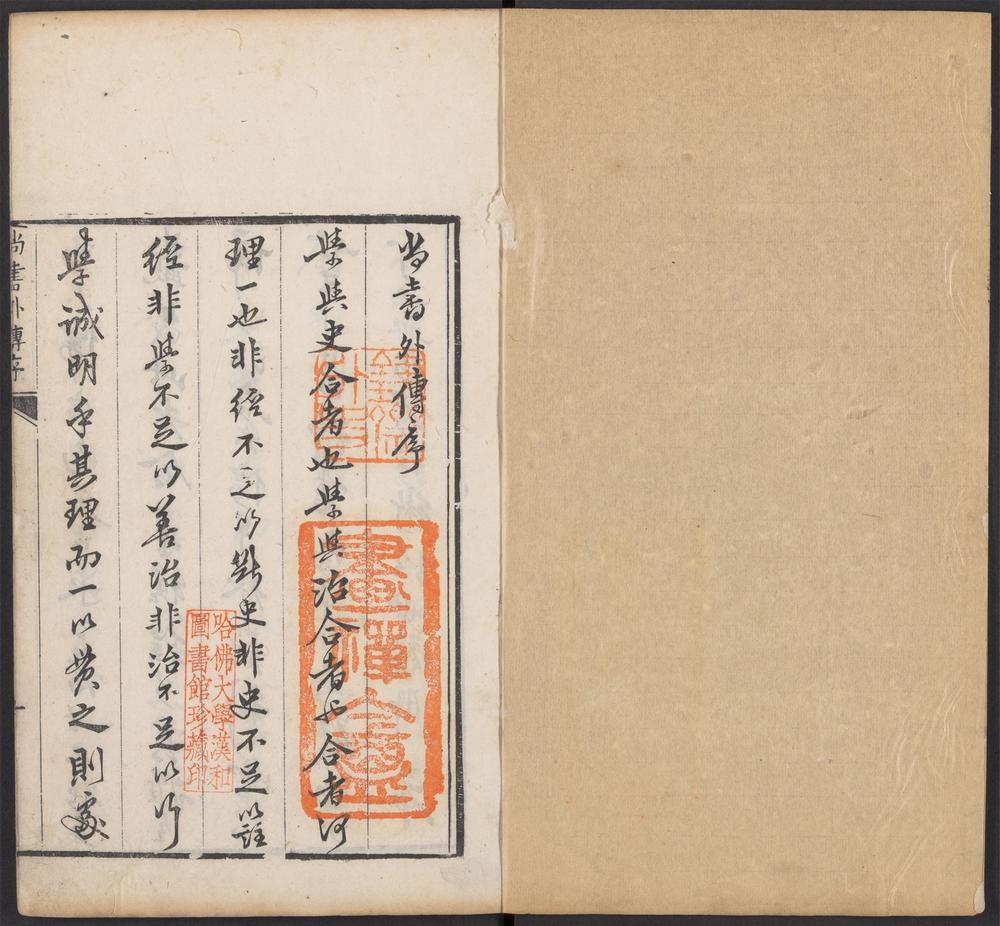 尚書外傳序
學與史合者也學與治合者也合者何
理一也非經不足以斷史非史不足以證
經非學不足以善治非治不足以行
學誠明乎其理而一以贯之則處
尚書外傳序
一
哈佛大學漢和
圖書館珍藏印